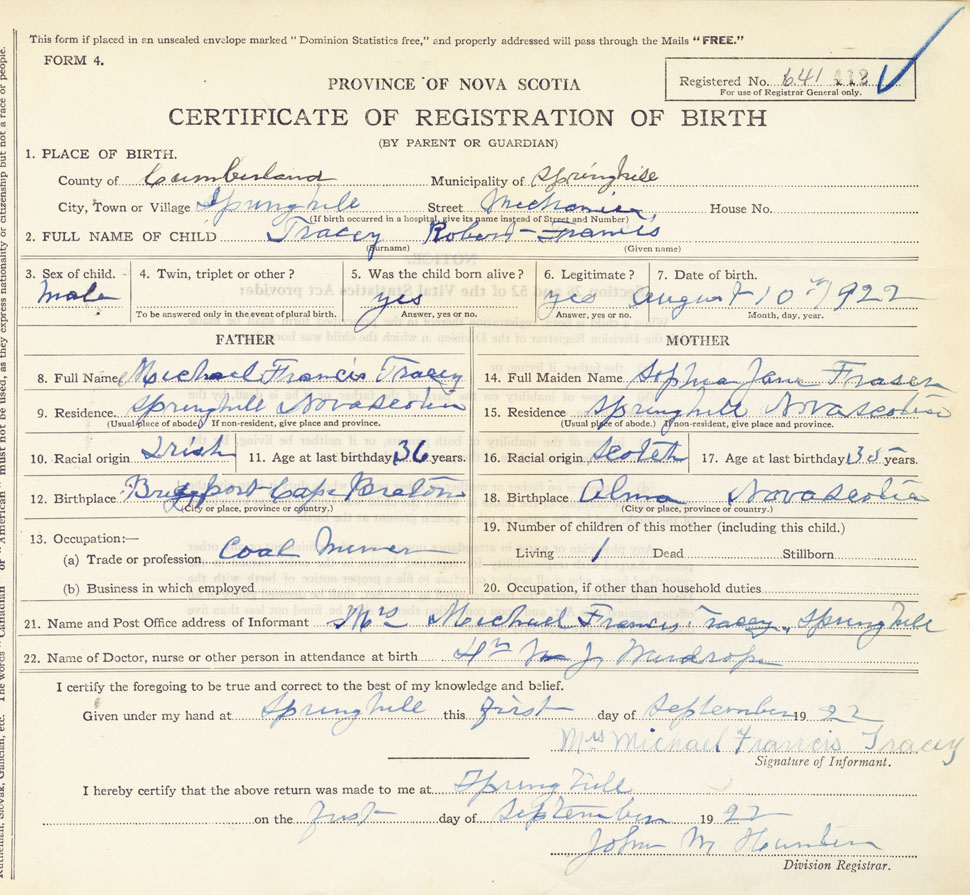 This form if placed in an unsealed envelope marked "Dominion Statistics free," and properly addressed will pass through the Mails "FREE."
FORM 4.
PROVINCE OF NOVA SCOTIA
Registered No. 641
For use of Registrar General only.
CERTIFICATE OF REGISTRATION OF BIRTH
(BY PARENT OR GUARDIAN)
1. PLACE OF BIRTH.
County of Cumberland Municipality of Springhill
City, Town or Village Springhill Street Mechanic, House No.
(If birth occurred in a hospital, give its name instead of Street and Number)
2. FULL NAME OF CHILD Tracey Robert Francis
(Surname) (Given name)
3. Sex of child. 4. Twin, triplet or other? 5. Was the child born alive? 6. Legitimate? 7. Date of birth.
Male yes yes August 10th 1922
To be answered only in the event of plural birth. Answer, yes or no. Answer, yes or no. Month, day, year.
FATHER MOTHER
8. Full Name Michael Francis Tracey 14. Full Maiden Name Sophia Jane Fraser
9. Residence Springhill Nova Scotia 15. Residence Springhill Nova Scotia
(Usual place of abode.) If non-resident, give place and province. (Usual place of abode.) If non-resident, give place and province.
10. Racial origin Irish 11. Age at last birthday 36 years. 16. Racial origin Scotch 17. Age at last birthday 35 years.
12. Birthplace Cape Breton 18. Birthplace Alma Nova Scotia
(City or place, province or country.) (City or place, province or country.)
13. Occupation:— 19. Number of children of this mother (including this child.)
(a) Trade or profession Coal Miner Living 1 Dead Stillborn
(b) Business in which employed 20. Occupation, if other than household duties
21. Name and Post Office address of Informant Mrs Michael Francis Tracey, Springhill
22. Name of Doctor, nurse or other person in attendance at birth J Wardrope
I certify the foregoing to be true and correct to the best of my knowledge and belief.
Given under my hand at Springhill this first day of September 1922
Mrs Michael Francis Tracey
Signature of Informant.
I hereby certify that the above return was made to me at Springhill
on the first day of September 1922
John M
Division Registrar.